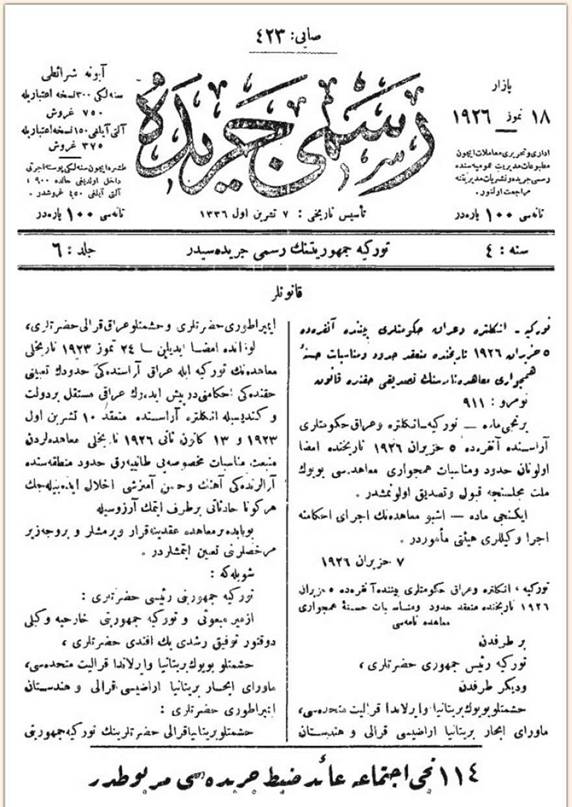 صايى: ٤٢٣
بازار
١٨ تموز ١٩٢٦
ادارى و تحريرى معاملات ايچون
مطبوعات مديريت عموميه سنده
رسمى جريده و نشريات مديريتنه
مراجعت اولنور.
نسخه سى ١٠٠ پاره در
رسمى جريده
تأسيس تاريخى: ٧ تشرين اول ١٣٣٦
آبونه شرائطى
سنه لكى ٣٠٠ نسخه اعتباريله
٧٥٠ غروش
آلتى آيلغى ١٥٠ نسخه اعتباريله
٣٧٥ غروش
طشره ايچون سنه لكى پوسته اجرتى
داخل اولديغى حالده ٩٠٠،
آلتى آيلغى ٤٥٠ غروشدر.
نسخه سى ١٠٠ پاره در
سنه: ٤
توركيه جمهوريتنك رسمى جريده سيدر
جلد: ٦
قانونلر
توركيه - انكلتره و عراق حكومتلرى بيننده آنقره ده
٥ حزيران ١٩٢٦ تاريخنده منعقد حدود و مناسبات حسنۀ
همجوارى معاهده نامه سنك تصديقى حقنده قانون
نومرو: ٩١١
برنجى ماده — توركيه - انكلتره و عراق حكومتلرى
آراسنده آنقره ده ٥ حزيران ١٩٢٦ تاريخنده امضا
اولونان حدود و مناسبات همجوارى معاهده سى بويوك
ملت مجلسنجه قبول و تصديق اولونمشدر.
ايكنجى ماده — اشبو معاهده نك اجراى احكامنه
اجرا وكيللرى هيئتى مأموردر.
٧ حزيران ١٩٢٦
توركيه، انكلتره و عراق حكومتلرى بيننده آنقره ده ٥ حزيران
١٩٢٦ تاريخنده منعقد حدود و مناسبات حسنۀ همجوارى
معاهده نامه سى
بر طرفدن
توركيه رئيس جمهورى حضرتلرى،
وديكر طرفدن
حشمتلو بويوك بريتانيا و ايرلاندا قراليت متحده سى،
ماوراى ابحار بريتانيا اراضيسى قرالى و هندستان
ايمپراطورى حضرتلرى و حشمتلو عراق قرالى حضرتلرى،
لوزانده امضا ايديلن ٢٤ تموز ١٩٢٣ تاريخلى
معاهده نك توركيه ايله عراق آراسنده كى حدودك تعيينى
حقنده كى احكامنى درپيش ايدرك عراقى مستقل بر دولت
و كنديسيله انكلتره آراسنده منعقد ١٠ تشرين اول
١٩٢٣ و ١٣ كانون ثانى ١٩٢٦ تاريخلى معاهده لردن
منبعث مناسبات مخصوصه يى طانييه رق حدود منطقه سنده
آرالرنده كى آهنك و حسن آميزشى اخلال ايده بيله جك
هر كونا حادثاتى برطرف ايتمك آرزوسيله
بوبابده بر معاهده عقدينه قرار ويرمشلر و بروجه زير
مرخصلرنى تعيين ايتمشلردر.
شويله كه:
توركيه جمهوريتى رئيسى حضرتلرى:
ازمير مبعوثى و توركيه جمهوريتى خارجيه وكيلى
دوقتور توفيق رشدى بك افندى حضرتلرى،
حشمتلو بويوك بريتانيا و ايرلاندا قراليت متحده سى،
ماوراى ابحار بريتانيا اراضيسى قرالى و هندستان
ايمپراطورى حضرتلرى:
حشمتلو بريتانيا قرالى حضرتلرينك توركيه جمهوريتى
١١٤ نجى اجتماعه عائد ضبط جريده سى مربوطدر